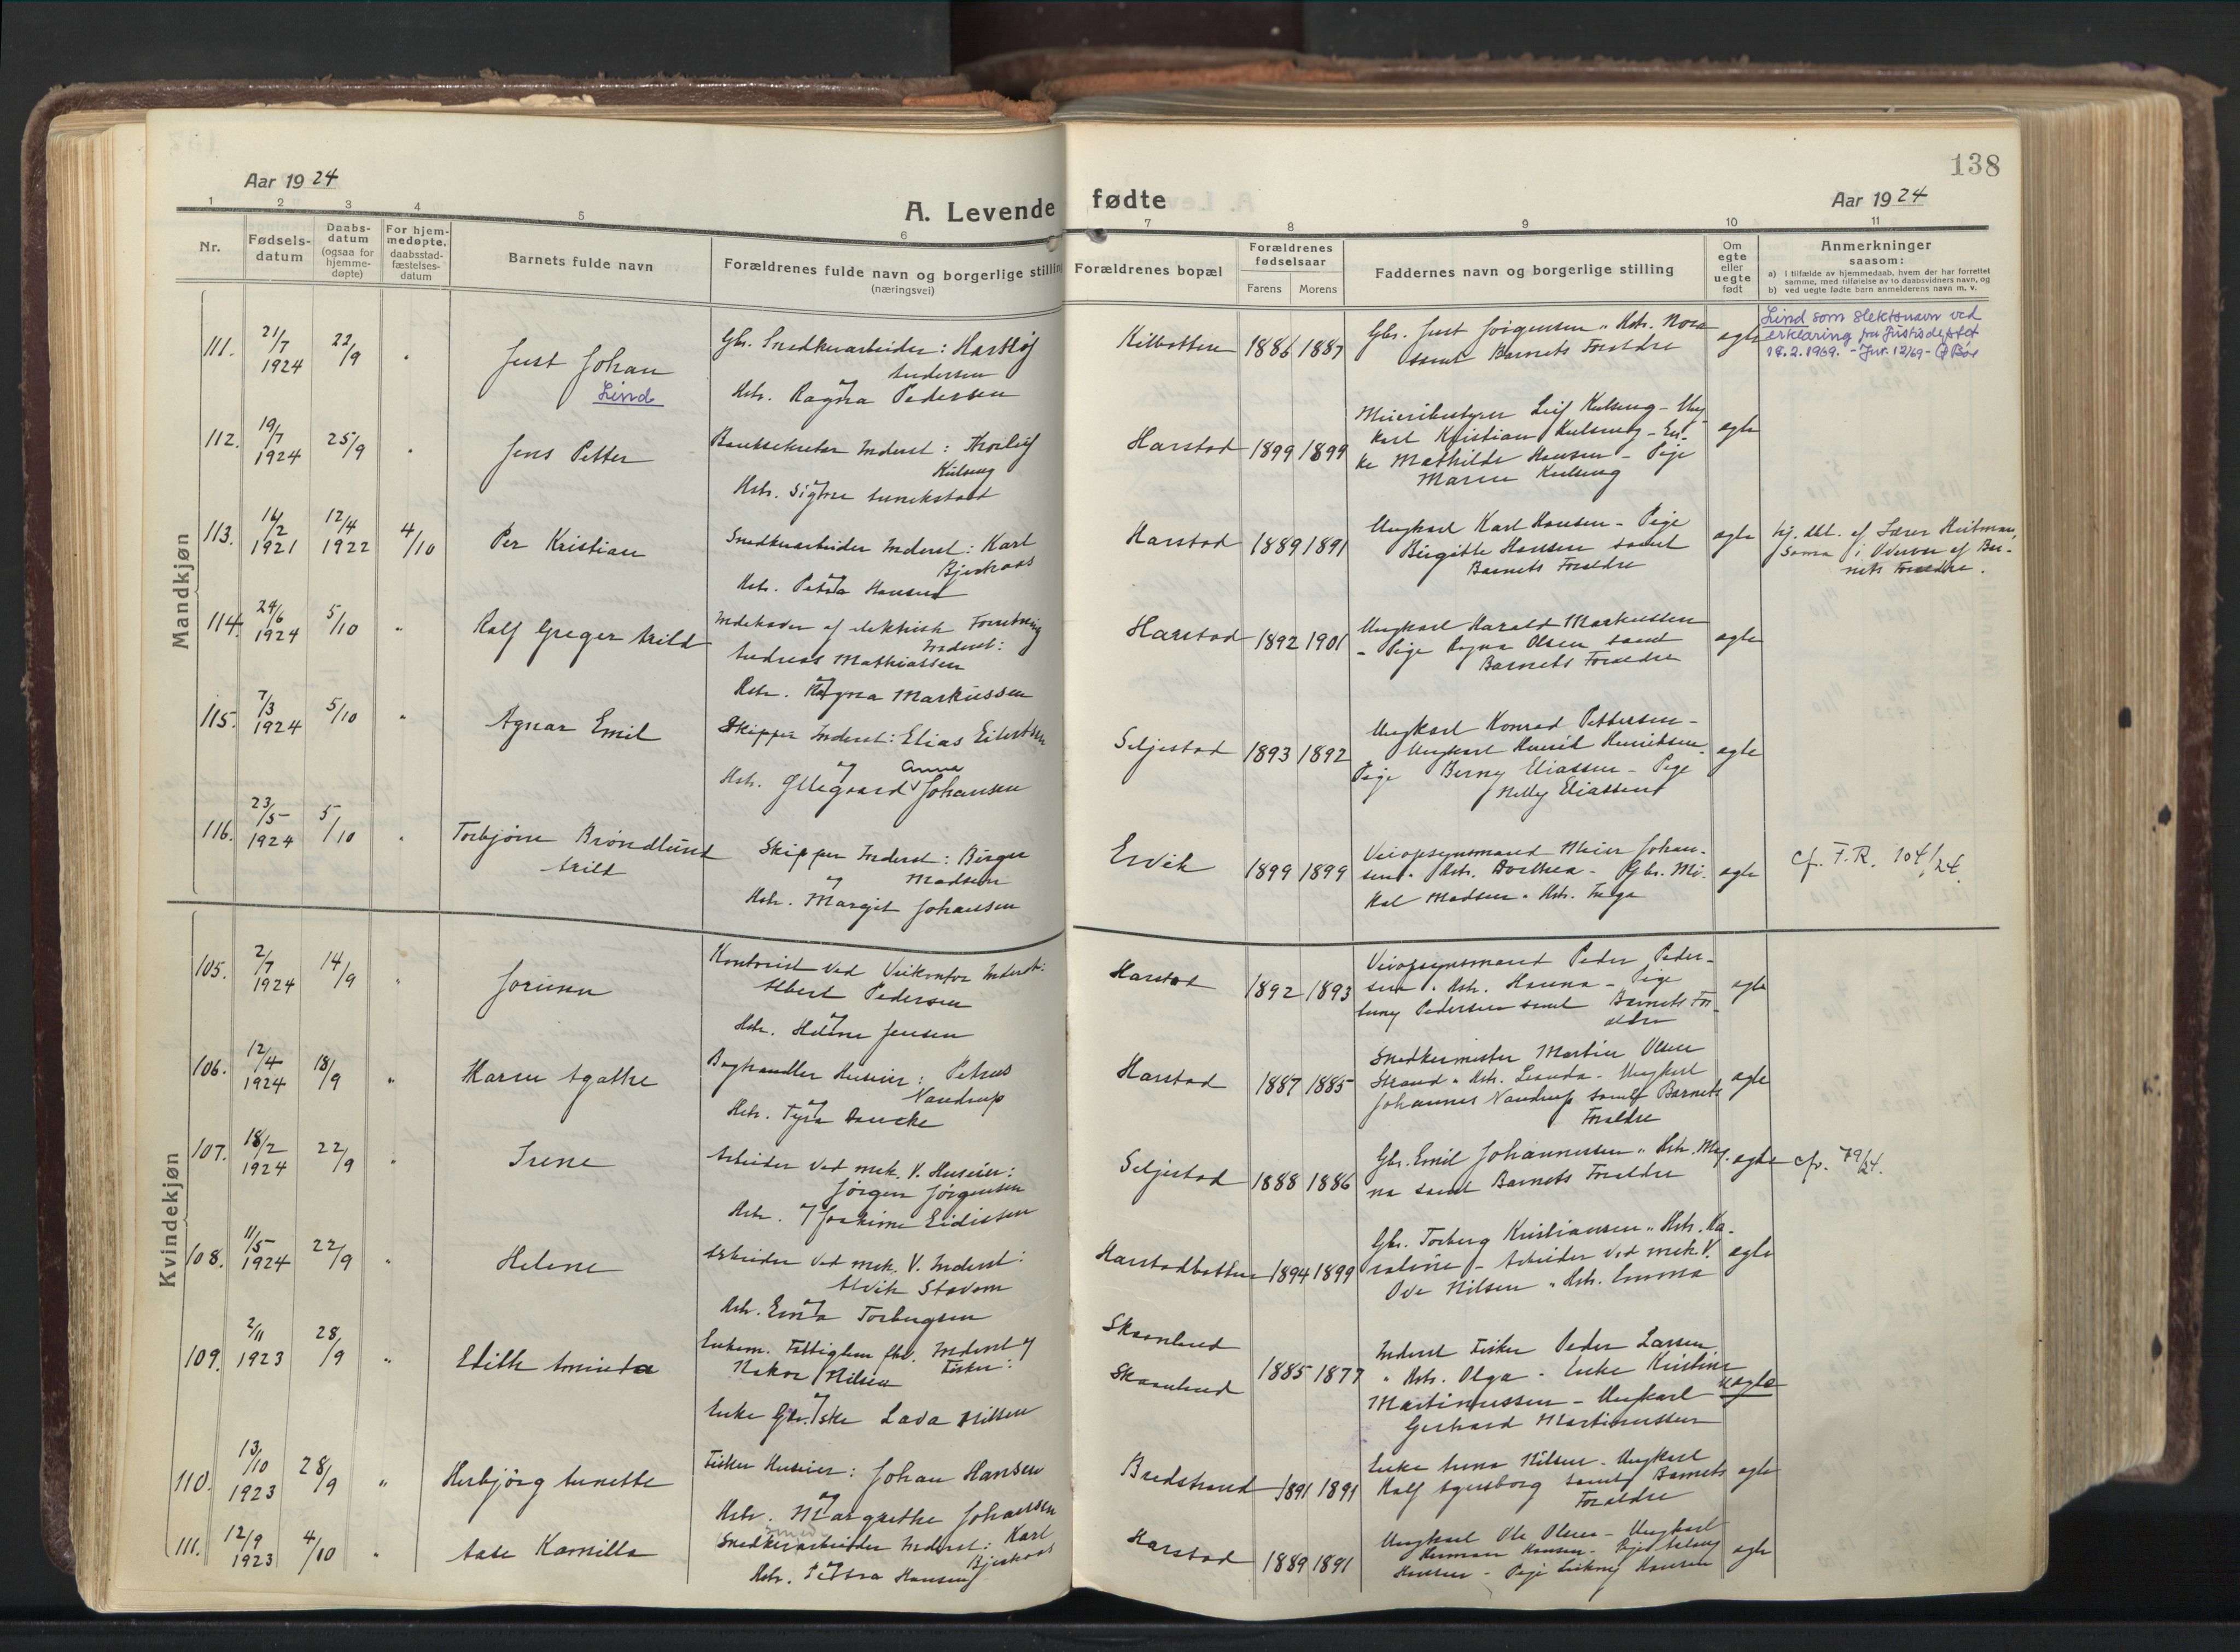 138
Aar 1924
A. Levende fødte
Aar 1924
1 2 3 4 5 6 7 8 9 10 11
Nr.
Fødsels-
datum
Daabs-
datum
(ogsaa for
hjemme-
døpte)
For hjem-
medøpte,
daabsstad-
fæstelses-
datum
Barnets fulde navn
Forældrenes fulde navn og borgerlige stilling
(næringsvei)
Forældrenes bopæl
Forældrenes
fødselsaar
Farens Morens
Faddernes navn og borgerlige stilling
Om
egte
eller
uegte
født
Anmerkninger
saasom:
a) i tilfælde av hjemmedaab, hvem der har forrettet
samme, med tilføielse av to daabsvidners navn, og
b) ved uegte fødte barn anmelderens navn m. v.
Mandkjøn
111.
21/7
1924
22/9
Just Johan
Lind
Gbr. Snedkerarbeider:
Andersen
og
Hstr. Ragna Pedersen
Kilbotten
1886 1887
Gbr. Just Jørgensen " Hstr. Nora
samt Barnets Forældre
egte
Lind som slektsnavn ved
erklæring fra Justisdeptet
18.2.1969. - Jnr. 12/69 -
112.
19/7
1924
25/9
Jens Petter
Inderst:
Kulseng
og
Hstr. Signe
Harstad
1899 1899
Meieribestyrer Leif Kulseng - Ung-
karl Kristian Kulseng - En-
ke Mathilde Hansen - Pige
Maren Kulseng
egte
113.
16/2
1921
12/4
1922
4/10
Per Kristian
Snedkerarbeider Inderst: Karl
Bjerkaas
og
Hstr. Petra Hansen
Harstad
1889 1891
Ungkarl Karl Hansen - Pige
Birgitte Hansen samt
Barnets Forældre
egte
hj. dbt. af Lærer
samme i Overvær af Bar-
nets Forældre.
114.
24/6
1924
5/10
"
Ralf Greger Arild
Indehaver af elektrisk Forretning
Inderst:
Andreas Mathiassen
og
Hstr. Ragna Markussen
Harstad
1892 1901
Ungkarl Harald Markussen
- Pige Ragna Olsen samt
Barnets Forældre
egte
115.
7/3
1924
5/10
"
Agnar Emil
Skipper Inderst: Elias Eilertsen
og Anna
Hstr. Ollegaard Johansen
Seljestad
1893 1892
Ungkarl Konrad Pettersen -
Ungkarl Henrik Henriksen
Pige Berny Eliassen - Pige
Nelly Eliassen
egte
116.
23/5
1924
5/10
Torbjørn Brøndlund
Arild
Skipper Inderst: Birger
og Madsen
Hstr. Margit Johansen
Ervik
1899 1899
Veiopsynsmand Meier Johan-
sen " Hstr. Dorthea - Gbr. Mi-
kal Madsen " Hstr. Helga
egte
cfr. F.R. 104/24.
Kvindekjøn
105.
2/7
1924
14/9
"
Jorunn
Kontorist ved Veikontor Inderst:
Albert Pedersen
og
Hstr. Helene Jensen
Harstad
1892 1893
Veiopsynsmand Peder Peder-
sen " Hstr. Hanna - Pige
Pedersen samt Barnets For-
ældre
egte
106.
12/4
1924
18/9
"
Karen Agathe
Boghandler Huseier: Petrus
og Vandrup
Hstr. Tyra Dancke
Harstad
1887 1885
Snedkermester Martin Olsen
Strand " Hstr. Leonda - Ungkarl
Johannes Vandrup samt Barnets
Forældre
egte
107.
18/2
1924
22/9
"
Irene
Arbeider ved mek. V. Huseier:
Jørgen Jørgensen
Hstr. og Joakime Eidissen
Seljestad
1888 1886
Gbr. Emil Johannessen " Hstr. Mag-
na samt Barnets Forældre
egte
cfr. 79/24.
108.
11/5
1924
22/9
"
Helene
Arbeider ved mek. V. Inderst:
Alvik
og
Hstr. Torbergsen
Harstadbotten
1894 1899
Gbr. Torberg Kristiansen " Hstr. Ka-
roline - Arbeider ved mek. V.
Ove Nilsen " Hstr. Emma
egte
109.
2/11
1923
28/9
"
Edith Aminda
Enkem. Inderst og
Hakon Nilsen Fisker:
og
Enke Lava Nilsen
Skaanland
Skaanland
1885 1877
Inderst Fisker Peder Larsen
" Hstr. Olga - Enke Kristine
Martinussen - Ungkarl
Gerhard Martinussen
uegte
110.
13/10
1923
28/9
"
Herbjørg Anette
Fisker Huseier: Johan Hansen
og
Hstr. Margrethe Johansen
Bredstrand
1891 1891
Enke Anna Nilsen - Ungkarl
Ralf samt Barnets
Forældre
egte
111.
12/9
1923
4/10
"
Aase Kamilla
Snedkerarbeider Inderst: Karl
og Bjerkaas
Hstr. Petra Hansen
Harstad
1889 1891
Ungkarl Ole Olsen - Ungkarl
Herman Hansen - Pige
Hansen - Pige Hansen
egte